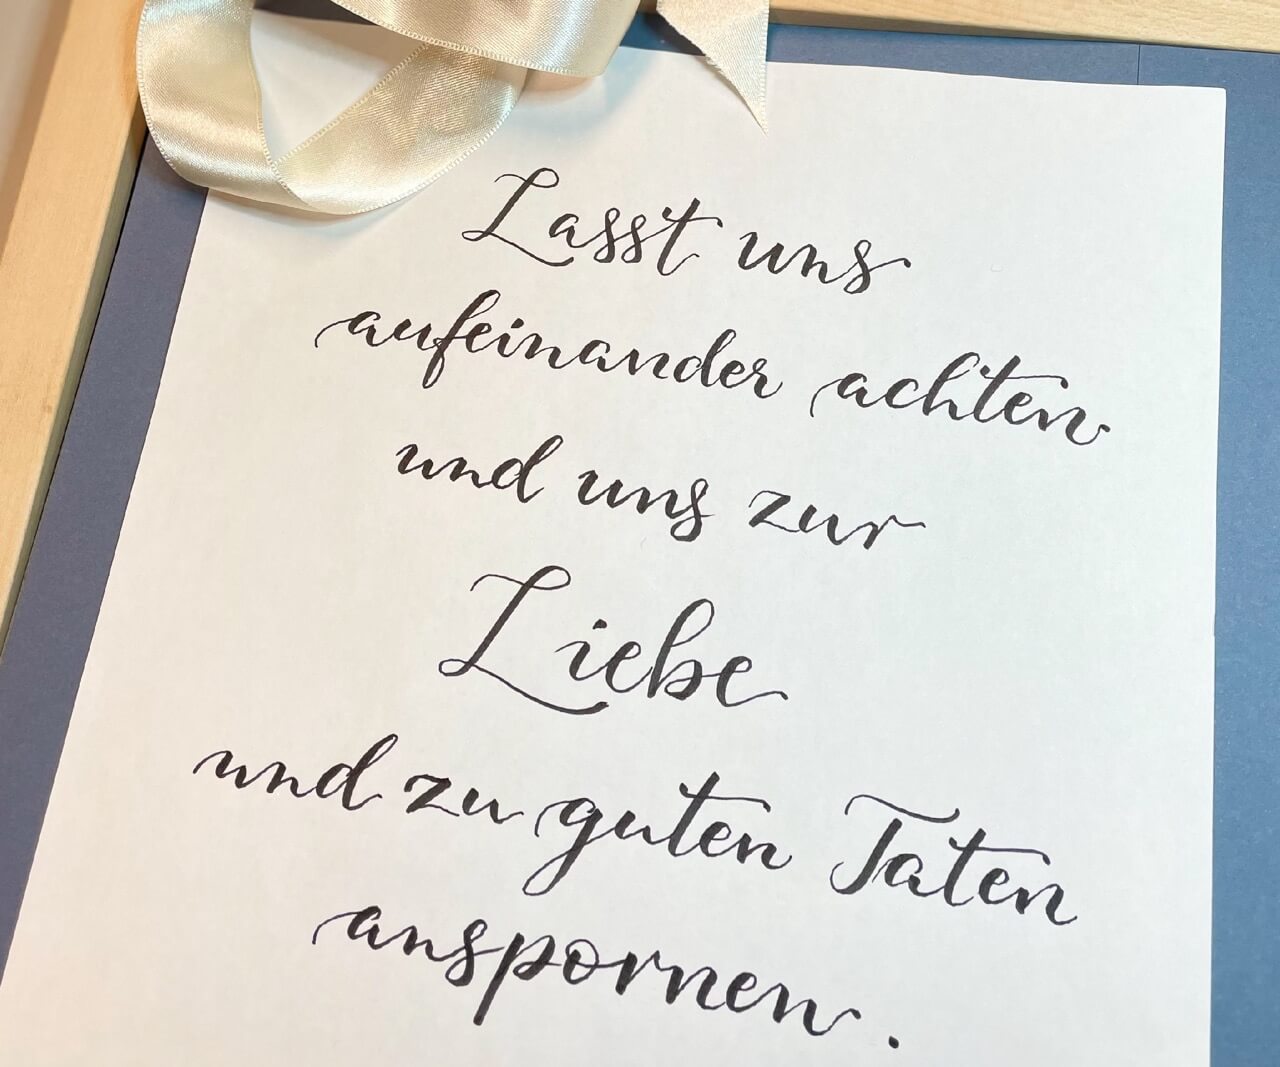 Lasst uns
aufeinander achten
und uns zur
Liebe
und zu guten Taten
anspornen.